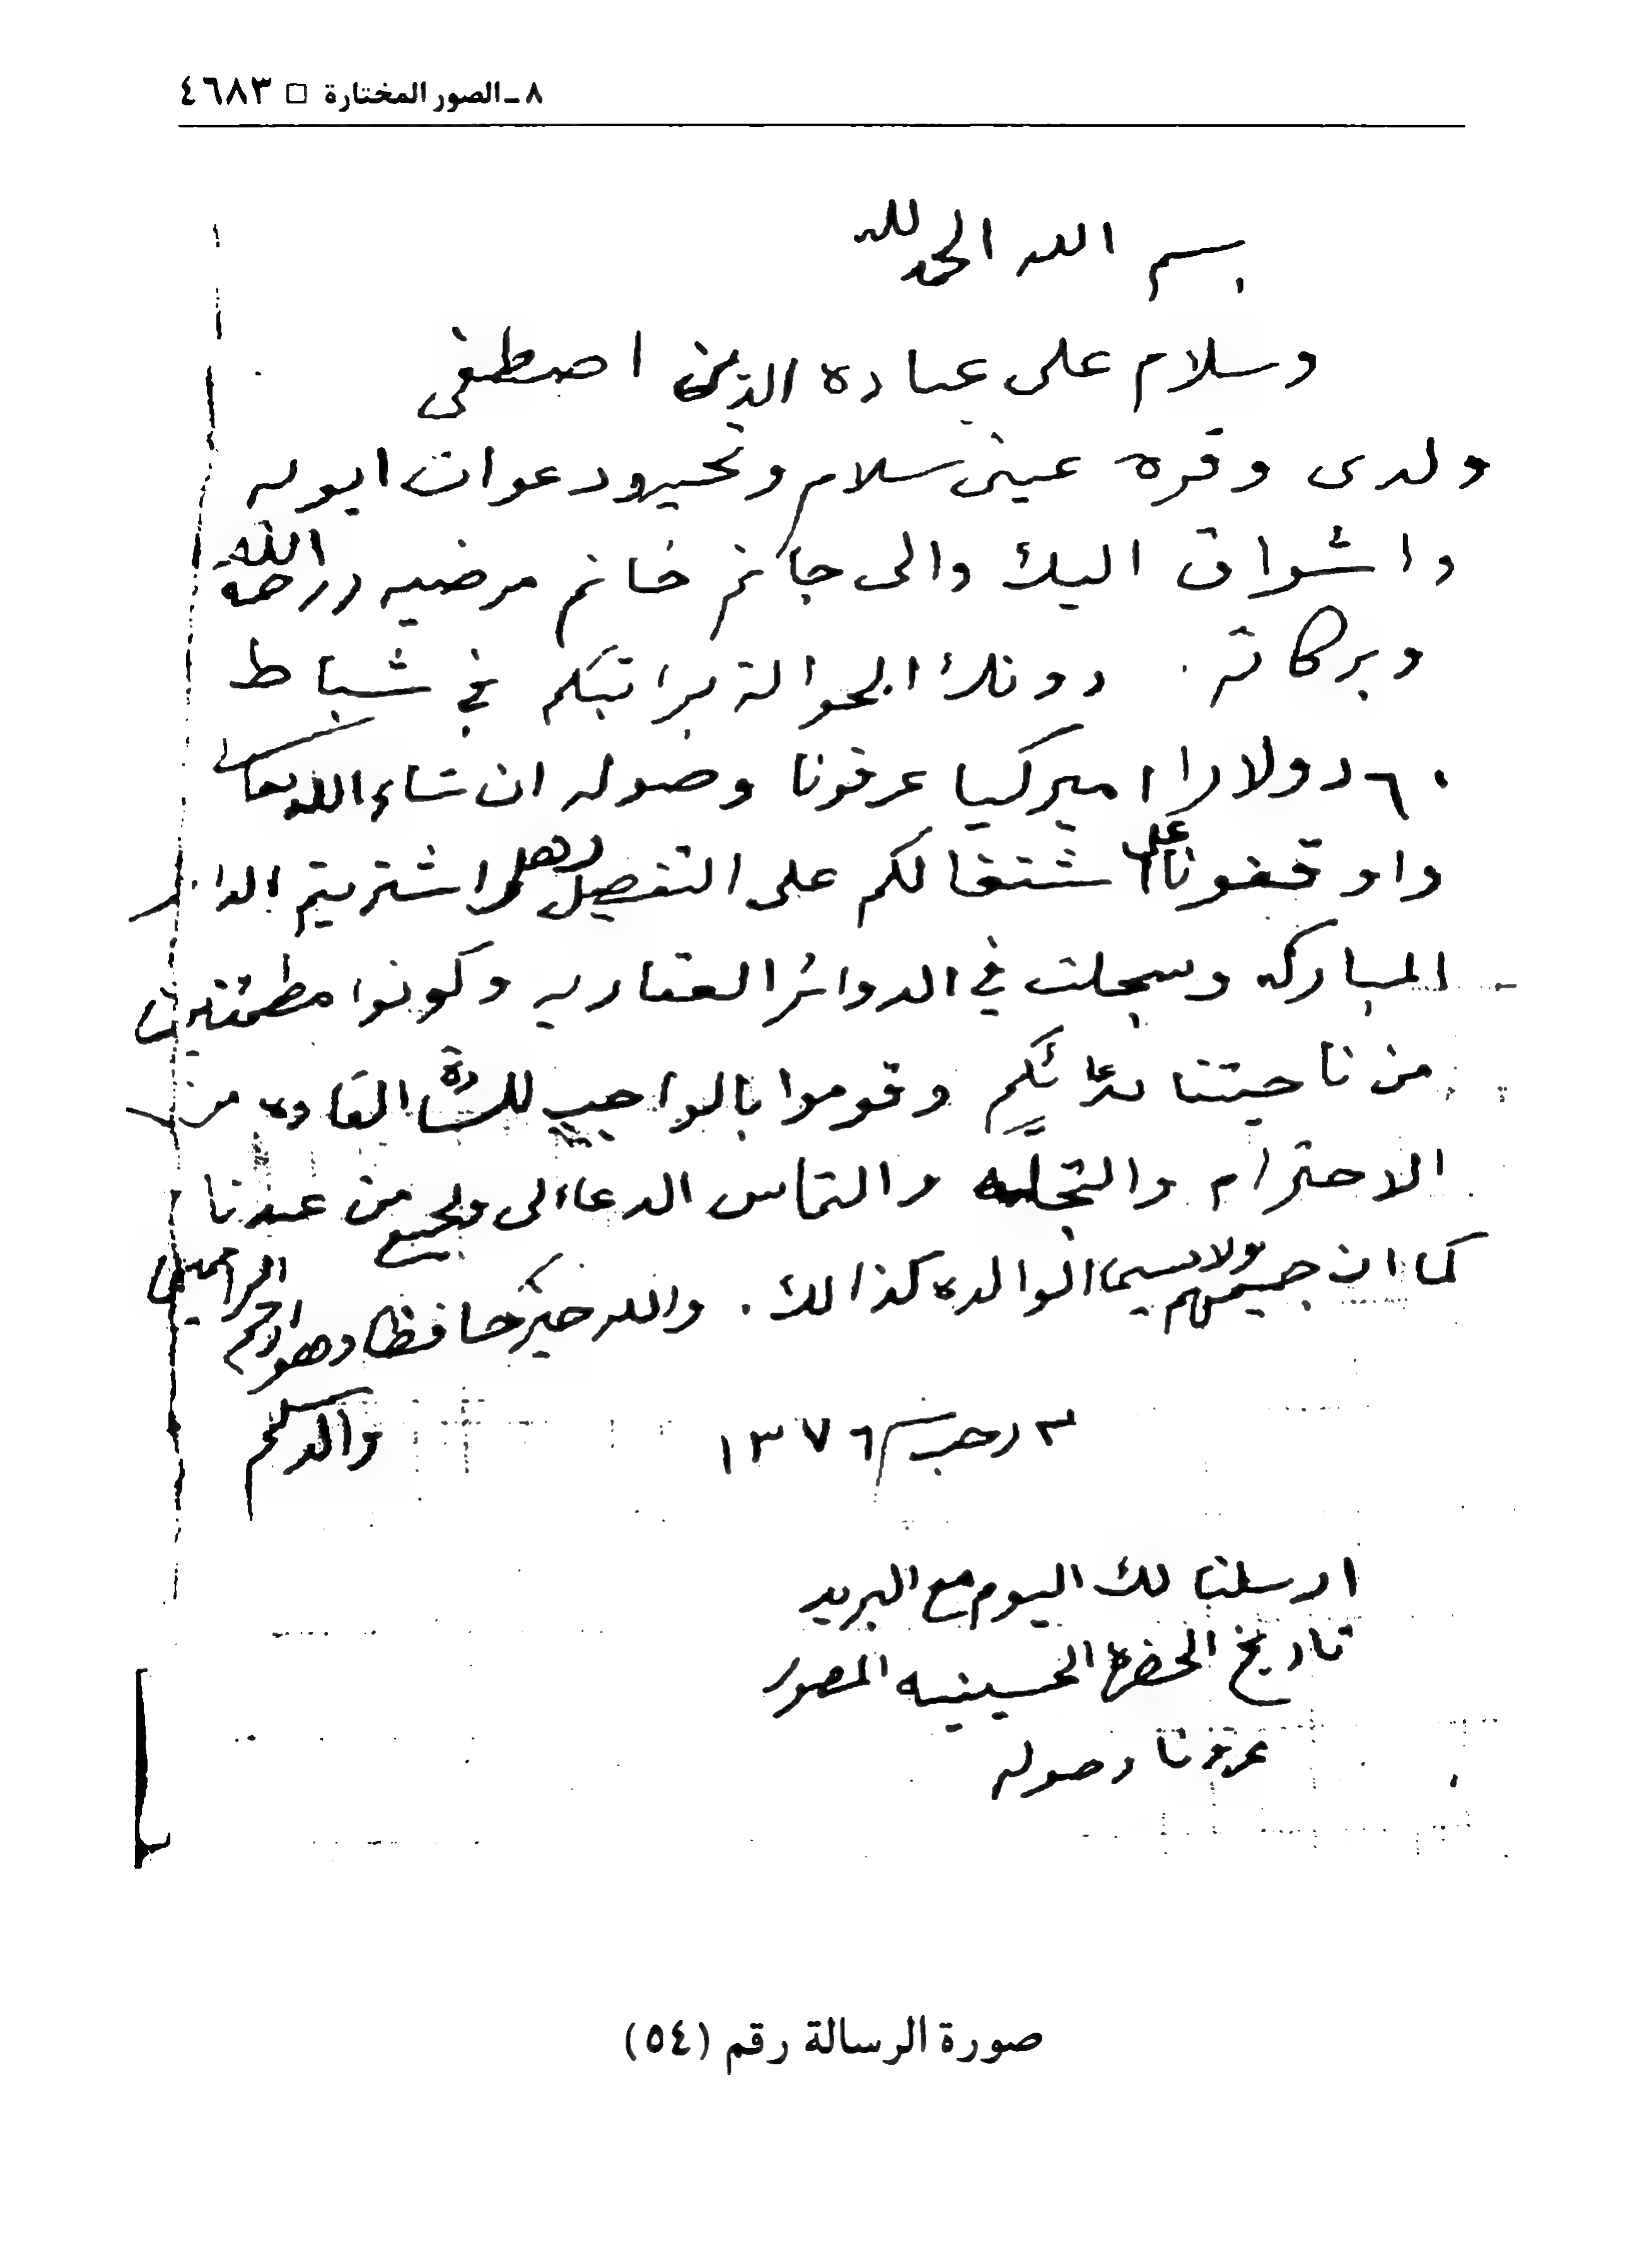 ٨ ـ الصور المختارة □ ٤٦٨٣
بسم الله الحمد لله
وسلام على عباده الذين اصطفى
ولدى وقره عينى سلام وتحيه ودعوات ابويه
واشواق اليك والى جانم خانم مرضيه ورحمة الله
وبركاته . دونك الحوالة براتبكم في شباط
٦٠ دولارا اميركيا عرفونا وصوله ان شاء الله تعالى
واوقفونا على اشتغالكم على التفصيل وهل اشتريتم الدار
المباركه وسجلت في الدوائر العقاريه وكونوا مطمئنين
من ناحيتنا بدعائكم وقوموا بالواجب للسادة القاده من
الاحترام والتجله والتماس الدعاء لى ولجميع من عندنا
كما ان جميعهم ولاسيما الوالده كذالك . والله خير حافظا وهو ارحم الراحمين
٣ رجب ١٣٧٦ والدكم
ارسلنا لك اليوم مع البريد
تاريخ الحضرة الحسينيه المصور
عرفونا وصوله
صورة الرسالة رقم (٥٤)